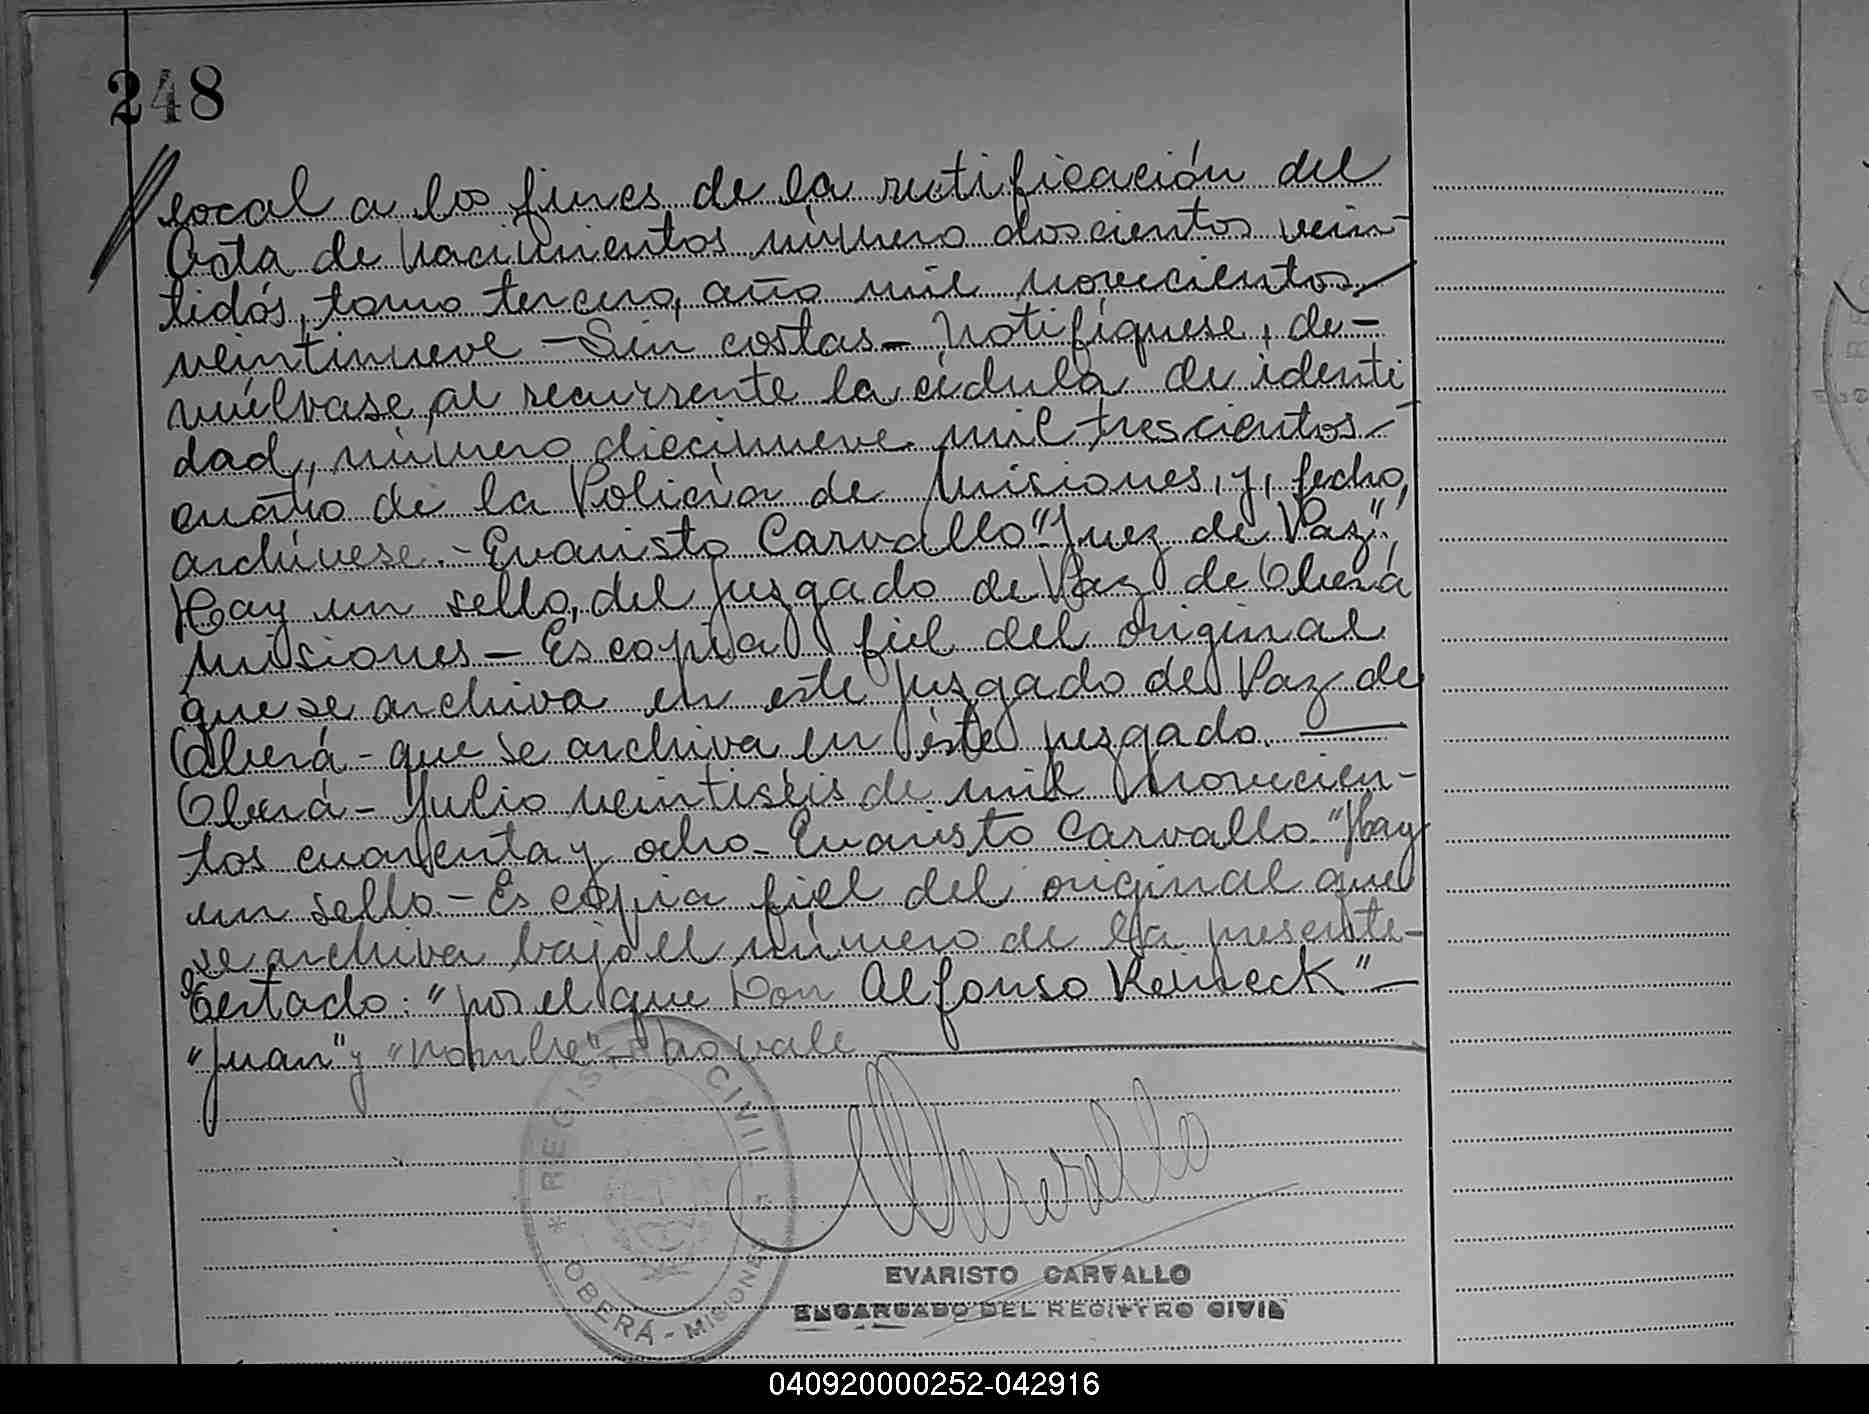 248
local a los fines de la rectificación del
Acta de Nacimientos número doscientos vein-
tidós, tomo tercero, año mil novecientos
veintinueve - Sin costas - Notifíquese, de-
vuélvase, al recurrente la cédula de identi
dad, número diecinueve mil trescientos
cuatro de la Policia de Misiones, y, fecho,
archívese. - Evaristo Carvallo "Juez de Paz",
Hay un sello, del Juzgado de Paz de Oberá
Misiones - Es copia fiel del original
que se archiva en este Juzgado de Paz de
Oberá - que se archiva en éste juzgado.
Oberá - Julio veintiseis de mil novecien-
tos cuarenta y ocho - Evaristo Carvallo - "Hay
un sello - Es copia fiel del original que
se archiva bajo el número de la presente -
Testado: "por el que Don Alfonso Reineck" -
"Juan" y "nombre" - No vale
REGISTRO CIVIL
* OBERÁ - MISIONES *
Carvallo
EVARISTO CARVALLO
ENCARGADO DEL REGISTRO CIVIL
040920000252-042916